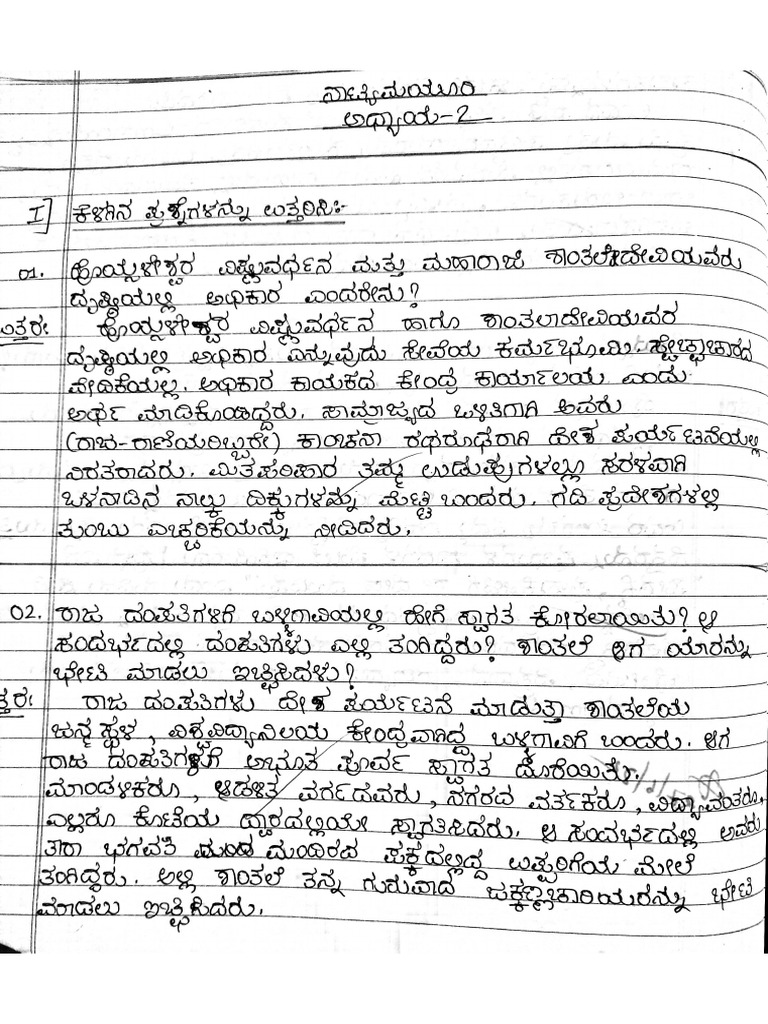 ನಾಟ್ಯಮಯೂರಿ
ಅಧ್ಯಾಯ-2
I] ಕೆಳಗಿನ ಪ್ರಶ್ನೆಗಳನ್ನು ಉತ್ತರಿಸಿ:-
01. ಹೊಯ್ಸಳೇಶ್ವರ ವಿಷ್ಣುವರ್ಧನ ಮತ್ತು ಮಹಾರಾಜ್ಞಿ ಶಾಂತಲಾದೇವಿಯವರು
ದೃಷ್ಟಿಯಲ್ಲಿ ಅಧಿಕಾರ ಎಂದರೇನು?
ಉತ್ತರ: ಹೊಯ್ಸಳೇಶ್ವರ ವಿಷ್ಣುವರ್ಧನ ಹಾಗೂ ಶಾಂತಲಾದೇವಿಯವರ
ದೃಷ್ಟಿಯಲ್ಲಿ ಅಧಿಕಾರ ಎನ್ನುವುದು ಸೇವೆಯ ಕರ್ಮಭೂಮಿ. ಸ್ವೇಚ್ಛಾಚಾರದ
ವೇದಿಕೆಯಲ್ಲ. ಅಧಿಕಾರ ಕಾಯಕದ ಕೇಂದ್ರ ಕಾರ್ಯಾಲಯ ಎಂದು
ಅರ್ಥ ಮಾಡಿಕೊಂಡಿದ್ದರು. ಸಾಮ್ರಾಜ್ಯದ ಒಳಿತಿಗಾಗಿ ಅವರು
(ರಾಜ-ರಾಣಿಯರಿಬ್ಬರೇ) ಕಾಂಚನಾ ರಥರೂಢರಾಗಿ ದೇಶ ಪರ್ಯಟನೆಯಲ್ಲಿ
ನಿರತರಾದರು. ಮಿತಪರಿವಾರ ತಮ್ಮ ಉಡುಪುಗಳಲ್ಲೂ ಸರಳವಾಗಿ
ಒಳನಾಡಿನ ನಾಲ್ಕು ದಿಕ್ಕುಗಳನ್ನು ಮೆಟ್ಟಿ ಬಂದರು. ಗಡಿ ಪ್ರದೇಶಗಳಲ್ಲಿ
ತುಂಬು ಎಚ್ಚರಿಕೆಯನ್ನು ನೀಡಿದರು.
02. ರಾಜ ದಂಪತಿಗಳಿಗೆ ಬಳ್ಳಿಗಾವಿಯಲ್ಲಿ ಹೇಗೆ ಸ್ವಾಗತ ಕೋರಲಾಯಿತು? ಆ
ಸಂದರ್ಭದಲ್ಲಿ ದಂಪತಿಗಳು ಎಲ್ಲಿ ತಂಗಿದ್ದರು? ಶಾಂತಲೆ ಆಗ ಯಾರನ್ನು
ಭೇಟಿ ಮಾಡಲು ಇಚ್ಛಿಸಿದಳು?
ತ್ತರ: ರಾಜ ದಂಪತಿಗಳು ದೇಶ ಪರ್ಯಟನೆ ಮಾಡುತ್ತಾ ಶಾಂತಲೆಯ
ಜನ್ಮಸ್ಥಳ, ವಿಶ್ವವಿದ್ಯಾನಿಲಯ ಕೇಂದ್ರವಾಗಿದ್ದ ಬಳ್ಳಿಗಾವಿಗೆ ಬಂದರು. ಆಗ
ರಾಜ ದಂಪತಿಗಳಿಗೆ ಅಭೂತ ಪೂರ್ವ ಸ್ವಾಗತ ದೊರೆಯಿತು.
ಮಾಂಡಳಿಕರೂ, ಆಡಳಿತ ವರ್ಗದವರು, ನಗರದ ವರ್ತಕರೂ, ವಿದ್ಯಾವಂತರೂ,
ಎಲ್ಲರೂ ಕೋಟೆಯ ದ್ವಾರದಲ್ಲಿಯೇ ಸ್ವಾಗತಿಸಿದರು. ಆ ಸಂದರ್ಭದಲ್ಲಿ ಅವರು
ತಾರಾ ಭಗವತಿ ಮಂದಿರದ ಪಕ್ಕದಲ್ಲಿದ್ದ ಉಪ್ಪರಿಗೆಯ ಮೇಲೆ
ತಂಗಿದ್ದರು. ಅಲ್ಲಿ ಶಾಂತಲೆ ತನ್ನ ಗುರುವಾದ ಜಕ್ಕಣ್ಣಚಾರಿಯರನ್ನು ಭೇಟಿ
ಮಾಡಲು ಇಚ್ಛಿಸಿದರು.